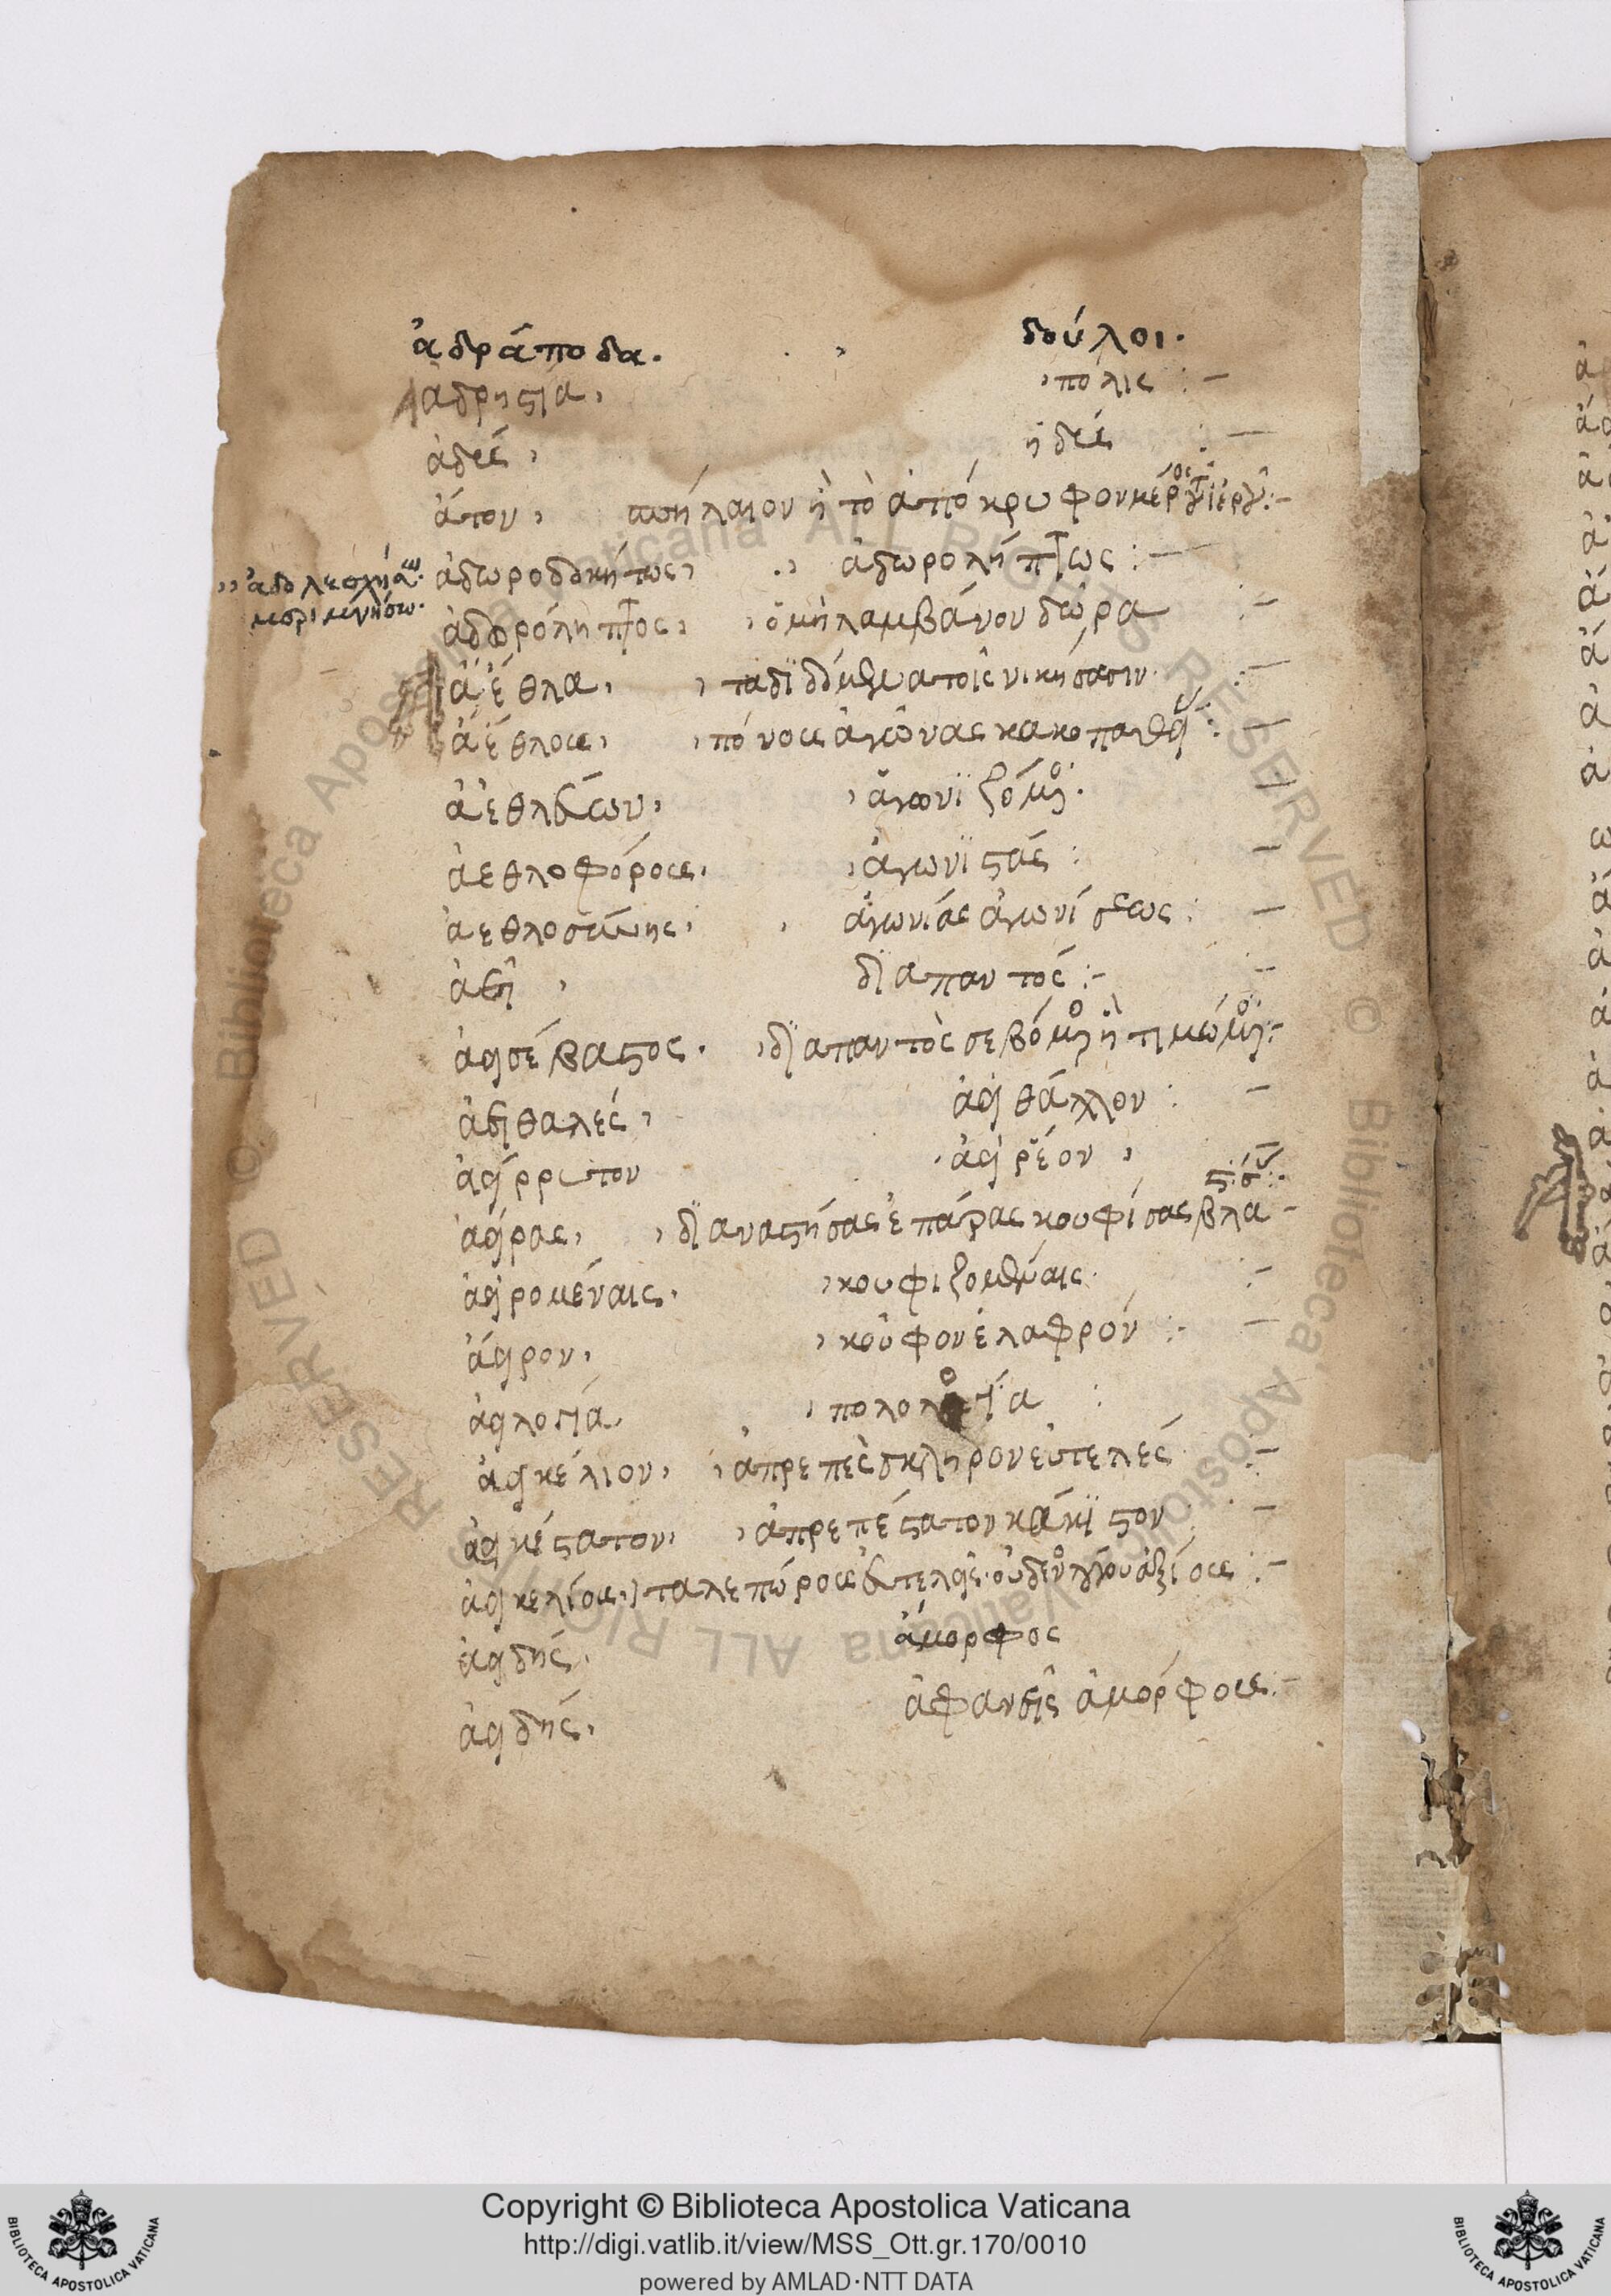 ἀδράποδα. δούλοι.
ἀδρηστία, πόλις :-
ἀδεές, ἡδεές :-
ἄτον, σπήλαιον ἢ τὸ ἀπόκρυφον μέρος τοῦ ἱεροῦ :-
ἀδολεσχήσω. ἀδωροδοκήτως, ἀδωρολήπτως :-
μεριμνήσω. ἀδωρόληπτος, ὁ μὴ λαμβάνον δῶρα :-
ἄεθλα, τὰ διδόμενα τοῖς νικήσασιν :-
ἀέθλους, πόνους ἀγῶνας κακοπαθείν :-
ἀεθλεύων, ἀγωνϊζόμενος.
ἀεθλοφόρους, ἀγωνϊστάς :-
ἀεθλοσύνης, ἀγωνίας ἀγωνίσεως :-
ἀεὶ, διαπαντός :-
ἀεισέβαστος. διαπαντὸς σεβόμενος ἢ τιμώμενος :-
ἀειθαλές, ἀεὶ θάλλον :-
ἀείρρυτον ἀεὶ ῥέον,
ἀείρας, διαναστήσας ἐπάρας κουφίσας βλα
στήσ :-
ἀειρομέναις. κουφιζομέναις :-
ἄειρον, κοῦφον ἐλαφρόν :-
ἀειλογία, πολολογία :
ἀεικέλιον, ἀπρεπὲς σκληρὸν εὐτελές :-
ἀεικέστατον, ἀπρεπέστατον κάκϊστον :-
ἀεικελίους, ταλεπώρους εὐτελεῖς. οὐδενὸς λόγου ἀξίους :-
ἀειδής. ἄμορφος
ἀειδής, ἀφανεῖς ἀμόρφους :-
Copyright © Biblioteca Apostolica Vaticana
http://digi.vatlib.it/view/MSS_Ott.gr.170/0010
powered by AMLAD·NTT DATA
BIBLIOTECA APOSTOLICA VATICANA
BIBLIOTECA APOSTOLICA VATICANA